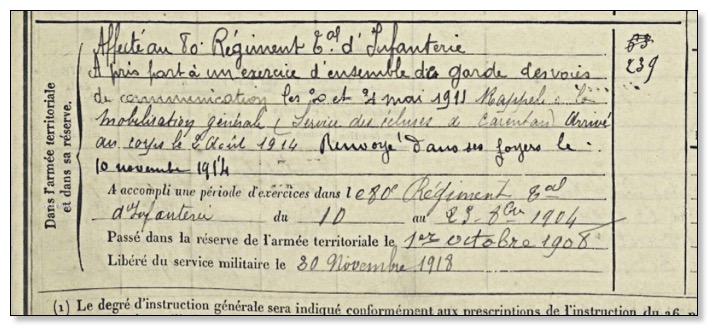 Affecté au 80e Régiment Tal d'Infanterie
A pris part à un exercice d'ensemble de garde des voies
239
de communication les 20 et 21 mai 1911 Rappelé : la
mobilisation générale (Service des écluses de Carentan) Arrivé
au corps le 2 Août 1914 Renvoyé dans ses foyers le :
10 novembre 1914
Dans l'armée territoriale
et dans sa réserve.
A accompli une période d'exercices dans l e 80e Régiment Tal
d'Infanterie du 10 au 23 8bre 1904
Passé dans la réserve de l'armée territoriale le 1er octobre 1908
Libéré du service militaire le 30 Novembre 1918
(1) Le degré d'instruction générale sera indiqué conformément aux prescriptions de l'instruction du 26